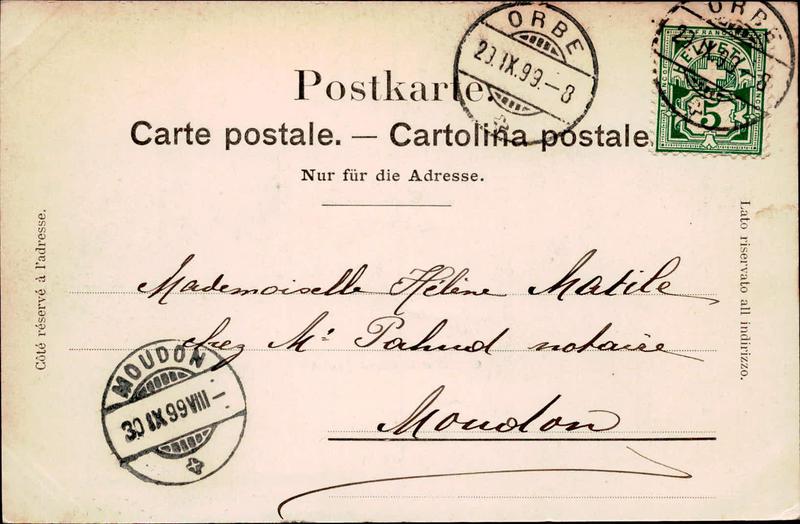 ORBE
29.IX.99.-8
ORBE
HELVETIA
FRANCO
5
Postkarte.
Carte postale. — Cartolina postale
Nur für die Adresse.
Côté réservé à l'adresse.
Lato riservato all indirizzo.
Mademoiselle Hélène Matile
chez Mr Pahud notaire
Moudon
MOUDON
30 IX 99 VIII -